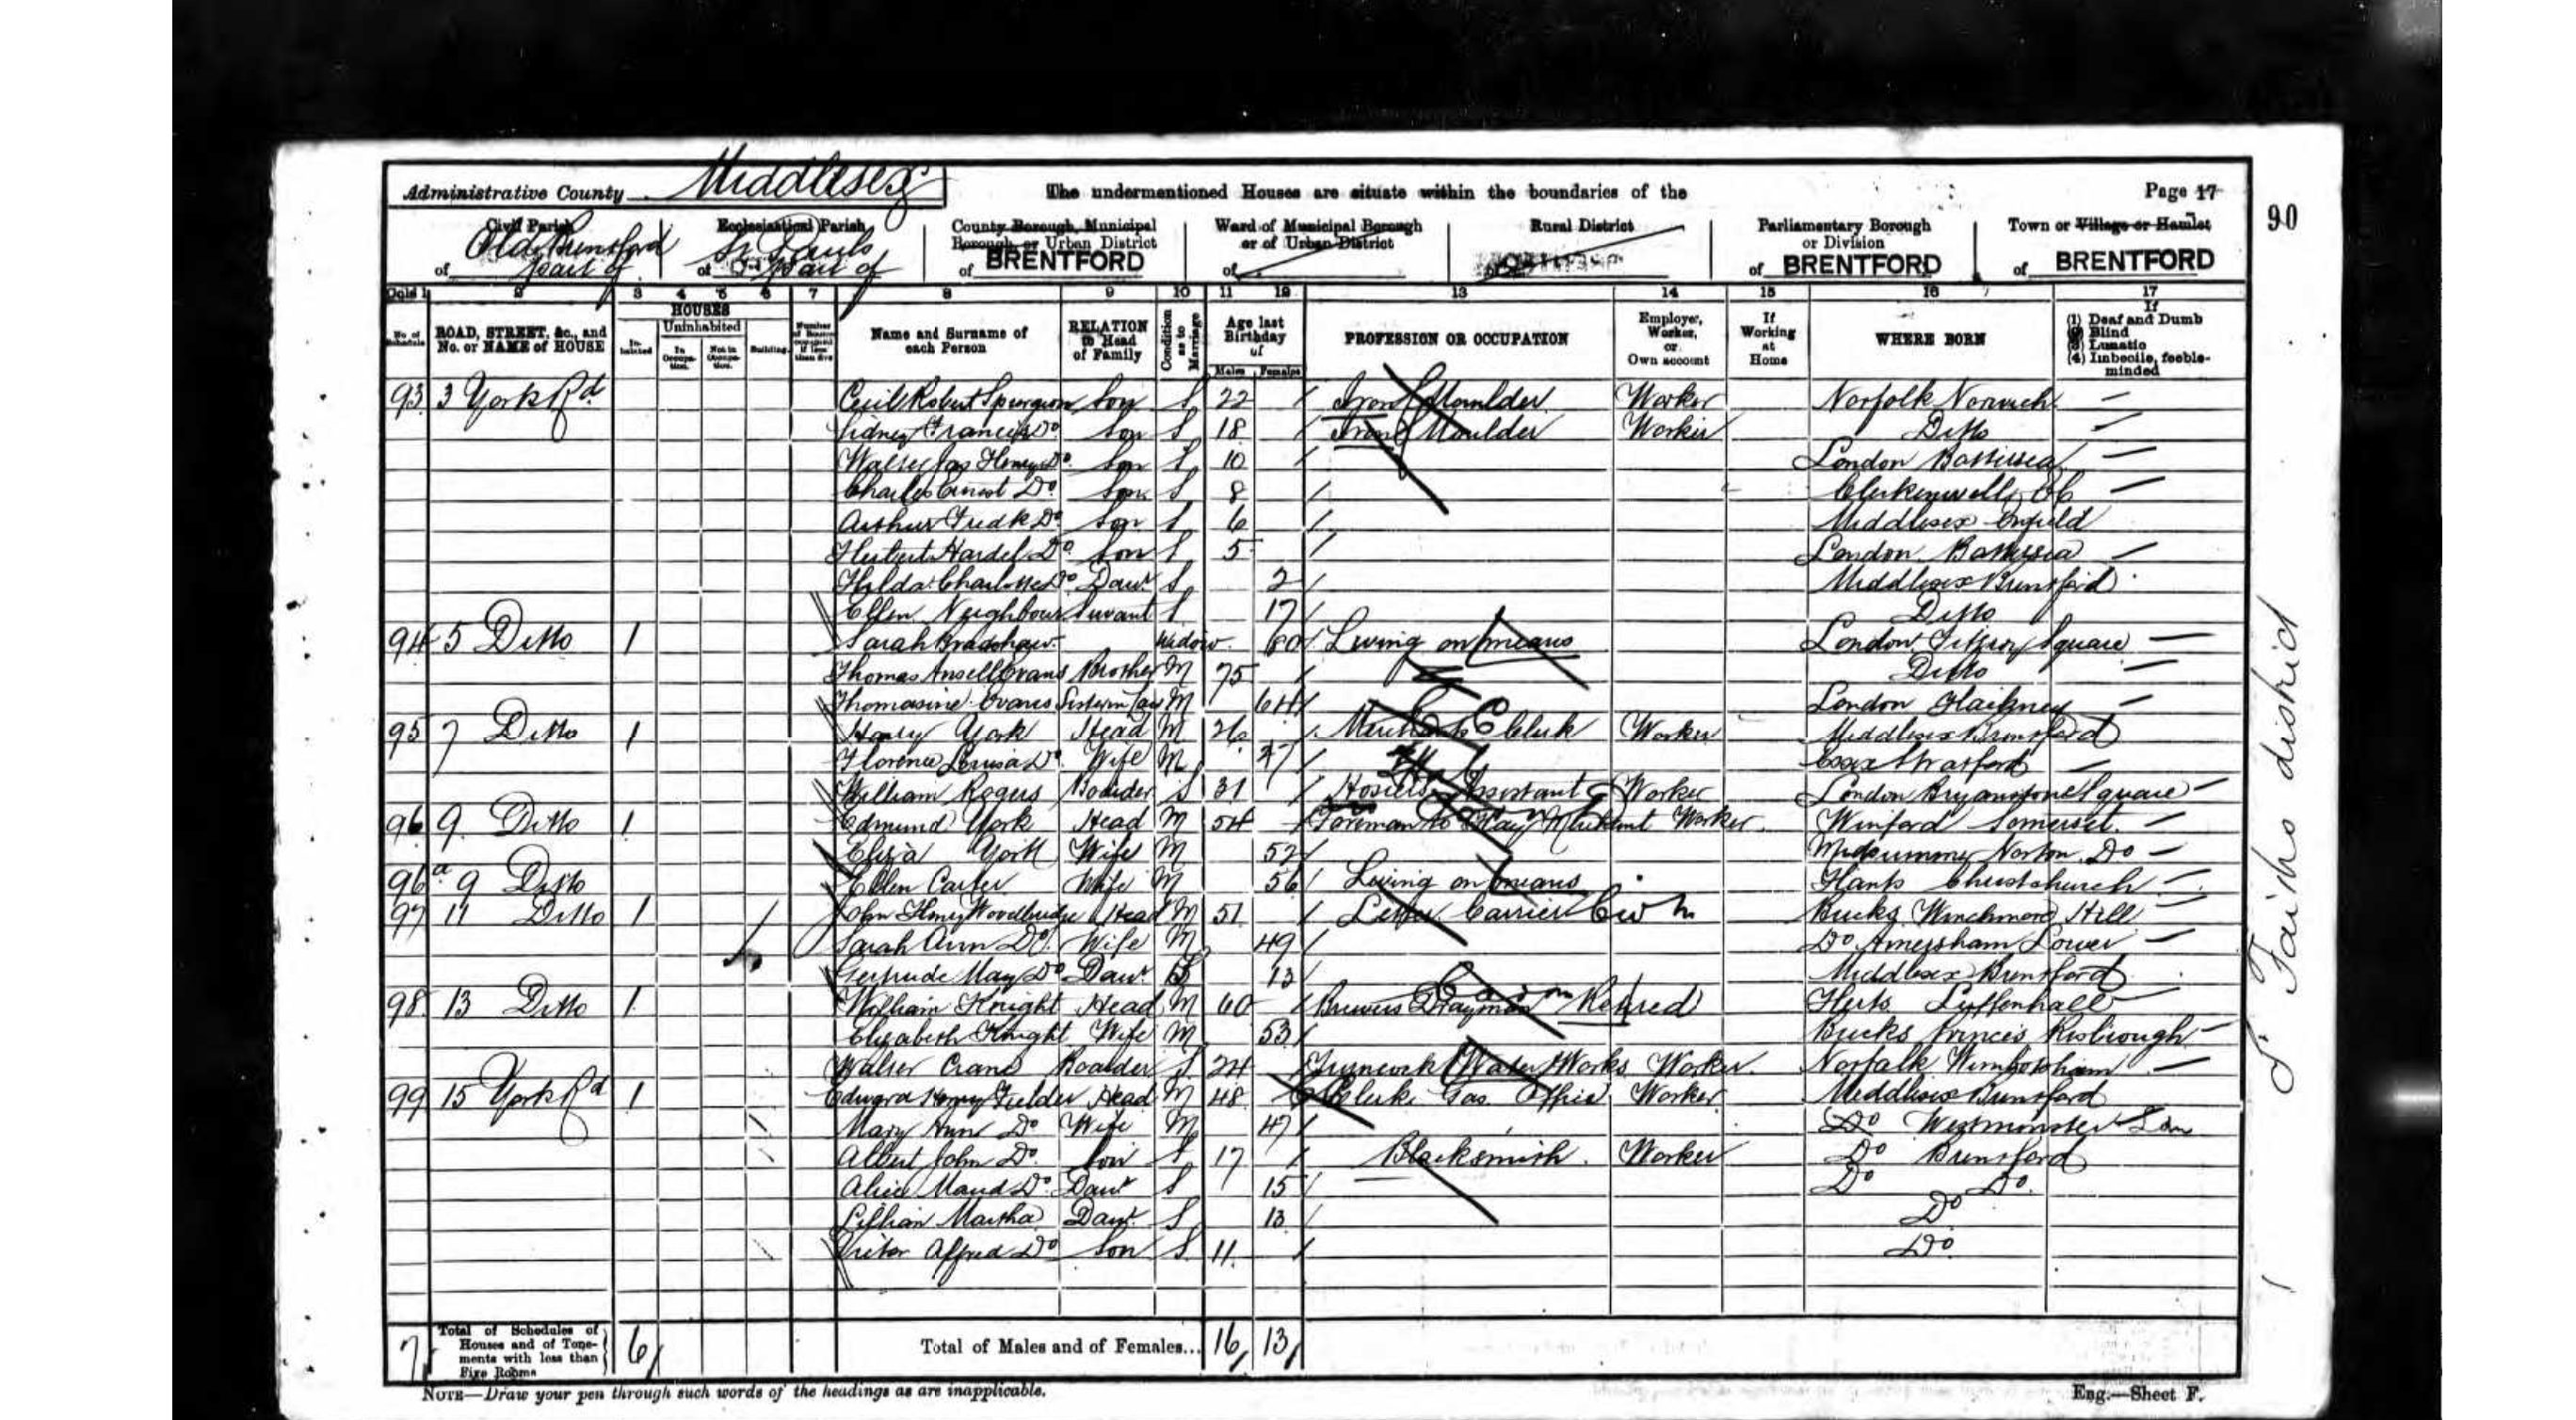 Administrative County Middlesex
The undermentioned Houses are situate within the boundaries of the
Page 17
90
Civil Parish of Old Brentford part of
Ecclesiastical Parish of St Pauls part of
County Borough, Municipal Borough or Urban District of BRENTFORD
Ward of Municipal Borough or of Urban District of
Rural District of
Parliamentary Borough or Division of BRENTFORD
Town or Village or Hamlet of BRENTFORD
Cols 1 2 3 4 5 6 7 8 9 10 11 12 13 14 15 16 17
No. of Schedule
ROAD, STREET, &c., and No. or NAME of HOUSE
HOUSES
Inhabited
Uninhabited
In Occupation.
Not in Occupation.
Building.
Number of Rooms occupied if less than five
Name and Surname of each Person
RELATION to Head of Family
Condition as to Marriage
Age last Birthday of
Males Females
PROFESSION OR OCCUPATION
Employer, Worker, or Own account
If Working at Home
WHERE BORN
If
(1) Deaf and Dumb
(2) Blind
(3) Lunatic
(4) Imbecile, feeble-minded
93 3 York Rd Cecil Robert Spurgeon Son S 22 Iron Moulder Worker Norfolk Norwich
Sidney Francis Do Son S 18 Iron Moulder Worker Ditto
Walter Jas Henry Do Son S 10 London Battersea
Charles Ernest Do Son S 8 Clerkenwell
Arthur Fredk Do Son S 6 Middlesex Enfield
Herbert Do Son S 5 London Battersea
Hilda Charlotte Do Daur S 2 Middlesex Brentford
Ellen Neighbour Servant S 17 Ditto
94 5 Ditto 1 Sarah Bradshaw Widow 60 Living on means London Fitzroy Square
Thomas Ansell Evans Brother M 75 Ditto
Thomasine Evans Sister in Law M 64 London Hackney
95 7 Ditto 1 Henry York Head M 26 Clerk Worker Middlesex Brentford
Florence Louisa Do Wife M 27 Essex Stratford
William Rogers Boarder S 31 Hosiers Assistant Worker London Bryanstone Square
96 9 Ditto 1 Edmund York Head M 54 Foreman to Hay Merchant Worker Winford Somerset
Eliza York Wife M 52 Midsummer Norton Do
96a 9 Ditto Ellen Carter Wife M 56 Living on means Hants Christchurch
97 11 Ditto 1 John Henry Woodbridge Head M 51 Letter Carrier Bucks Winchmore Hill
Sarah Ann Do Wife M 49 Do Amersham Lower
Gertrude May Do Daur S 13 Middlesex Brentford
98 13 Ditto 1 William Knight Head M 60 Brewers Drayman Retired Herts Luffenhall
Elizabeth Knight Wife M 53 Bucks Princes Risborough
Walter Crane Boarder S 24 Turncock Water Works Worker Norfolk
99 15 York Rd 1 Edward Henry Fielder Head M 48 Clerk Gas Office Worker Middlesex Brentford
Mary Ann Do Wife M 47 Do Westminster Lon
Albert John Do Son S 17 Blacksmith Worker Do Brentford
Alice Maud Do Daur S 15 Do Do
Lillian Martha Daur S 13 Do
Victor Alfred Do Son S 11 Do
St Faiths district
7 Total of Schedules of Houses and of Tenements with less than Five Rooms 6 Total of Males and of Females... 16 13
NOTE—Draw your pen through such words of the headings as are inapplicable.
Eng.—Sheet F.